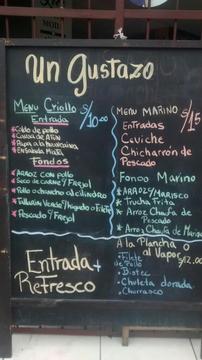 Un Gustazo
Menu Criollo S/10.00
Entrada
Caldo de pollo
Causa de Atún
Papa a la huancaina
Ensalada Mixta
Fondos
Arroz con pollo
Seco de carne y Frejol
Pollo o chancho al cilindro
Tallarin Verde y Higado o Filete
Pescado y Frejol
Entrada +
Refresco
Menu Marino S/15
Entradas
Ceviche
Chicharrón de
Pescado
Fondo Marino
Arroz/Marisco
Trucha Frita
Arroz Chaufa de
Pescado
Arroz Chaufa de Marisco
A la Plancha o
al Vapor
S/12.00
Filete
de Pollo
Bistec
Chuleta dorada
Churrasco